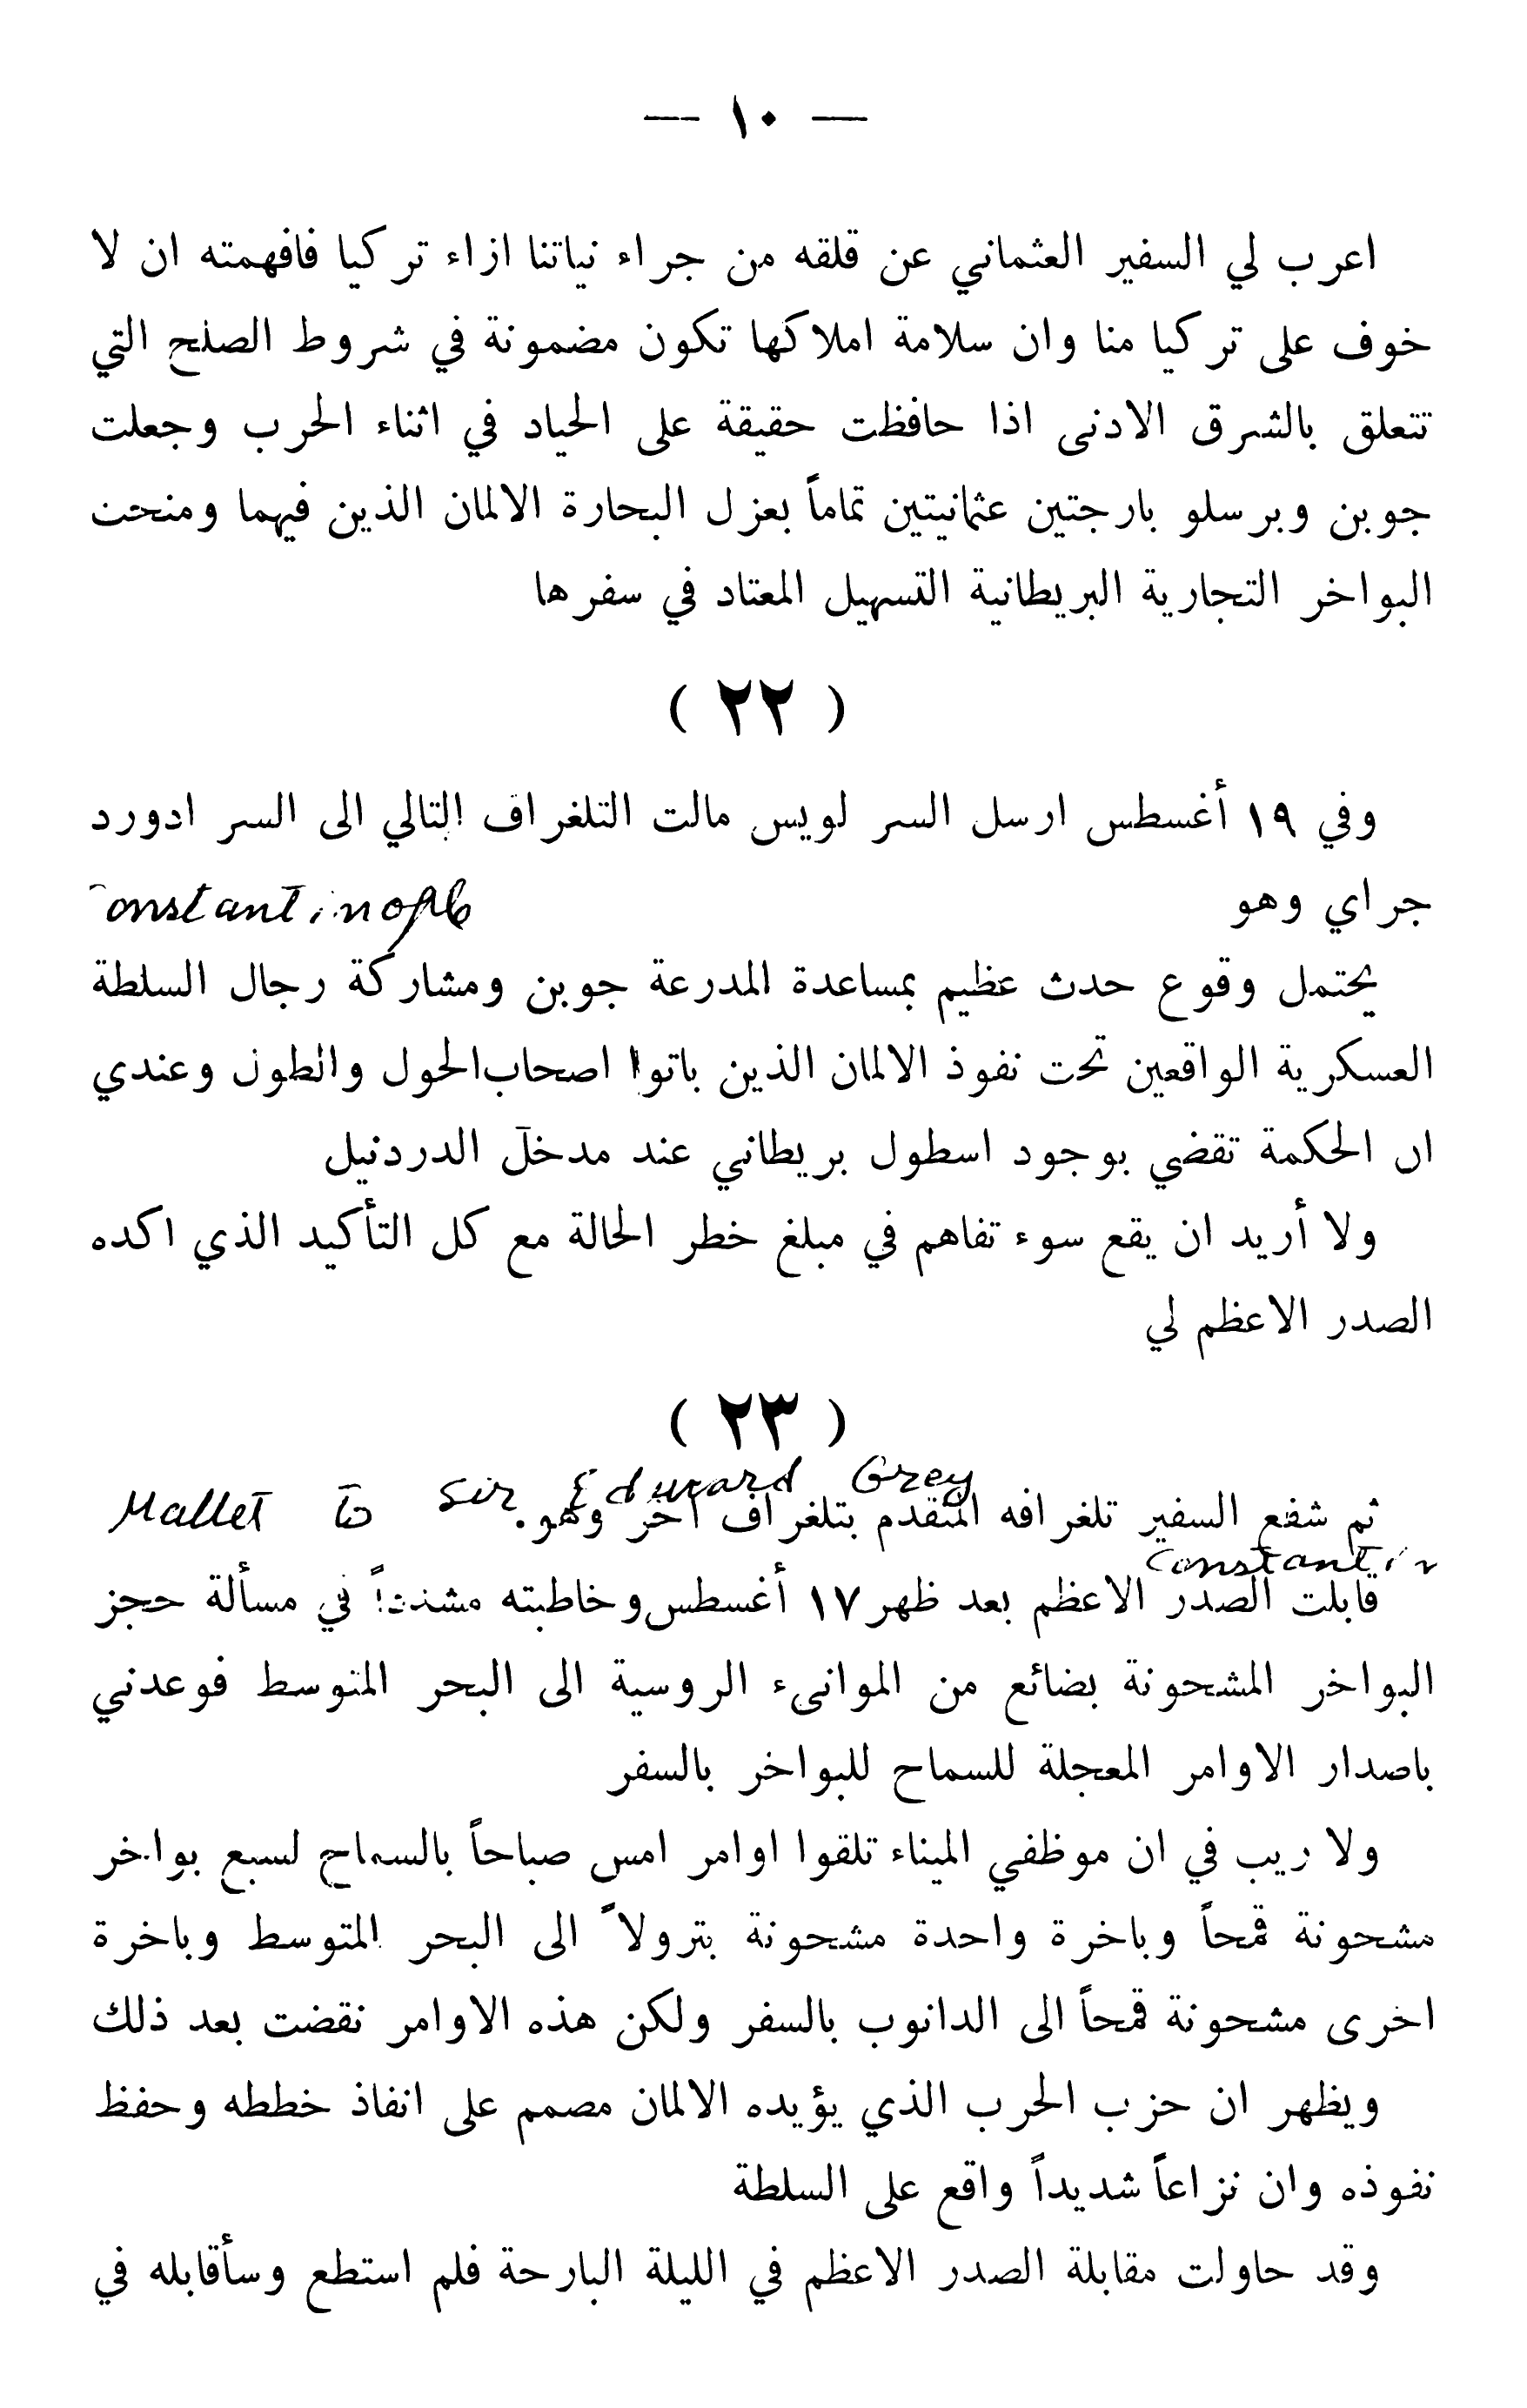 — ١٠ —
اعرب لي السفير العثماني عن قلقه من جراء نياتنا ازاء تركيا فافهمته ان لا
خوف على تركيا منا وان سلامة املاكها تكون مضمونة في شروط الصلح التي
تتعلق بالشرق الادنى اذا حافظت حقيقة على الحياد في اثناء الحرب وجعلت
جوبن وبرسلو بارجتين عثمانيتين تماماً بعزل البحارة الالمان الذين فيهما ومنحت
البواخر التجارية البريطانية التسهيل المعتاد في سفرها
( ٢٢ )
وفي ١٩ أغسطس ارسل السر لويس مالت التلغراف التالي الى السر ادورد
جراي وهو onstantinople
يحتمل وقوع حدث عظيم بمساعدة المدرعة جوبن ومشاركة رجال السلطة
العسكرية الواقعين تحت نفوذ الالمان الذين باتوا اصحاب الحول والطول وعندي
ان الحكمة تقضي بوجود اسطول بريطاني عند مدخل الدردنيل
ولا أريد ان يقع سوء تفاهم في مبلغ خطر الحالة مع كل التأكيد الذي اكده
الصدر الاعظم لي
( ٢٣ )
Mallet to Sir Edward Grey
ثم شفع السفير تلغرافه المتقدم بتلغراف آخر وهو.
Constantin
قابلت الصدر الاعظم بعد ظهر ١٧ أغسطس وخاطبته مشدداً في مسألة حجز
البواخر المشحونة بضائع من الموانىء الروسية الى البحر المتوسط فوعدني
باصدار الاوامر المعجلة للسماح للبواخر بالسفر
ولا ريب في ان موظفي الميناء تلقوا اوامر امس صباحاً بالسماح لسبع بواخر
مشحونة قمحاً وباخرة واحدة مشحونة بترولاً الى البحر المتوسط وباخرة
اخرى مشحونة قمحاً الى الدانوب بالسفر ولكن هذه الاوامر نقضت بعد ذلك
ويظهر ان حزب الحرب الذي يؤيده الالمان مصمم على انفاذ خططه وحفظ
نفوذه وان نزاعاً شديداً واقع على السلطة
وقد حاولت مقابلة الصدر الاعظم في الليلة البارحة فلم استطع وسأقابله في